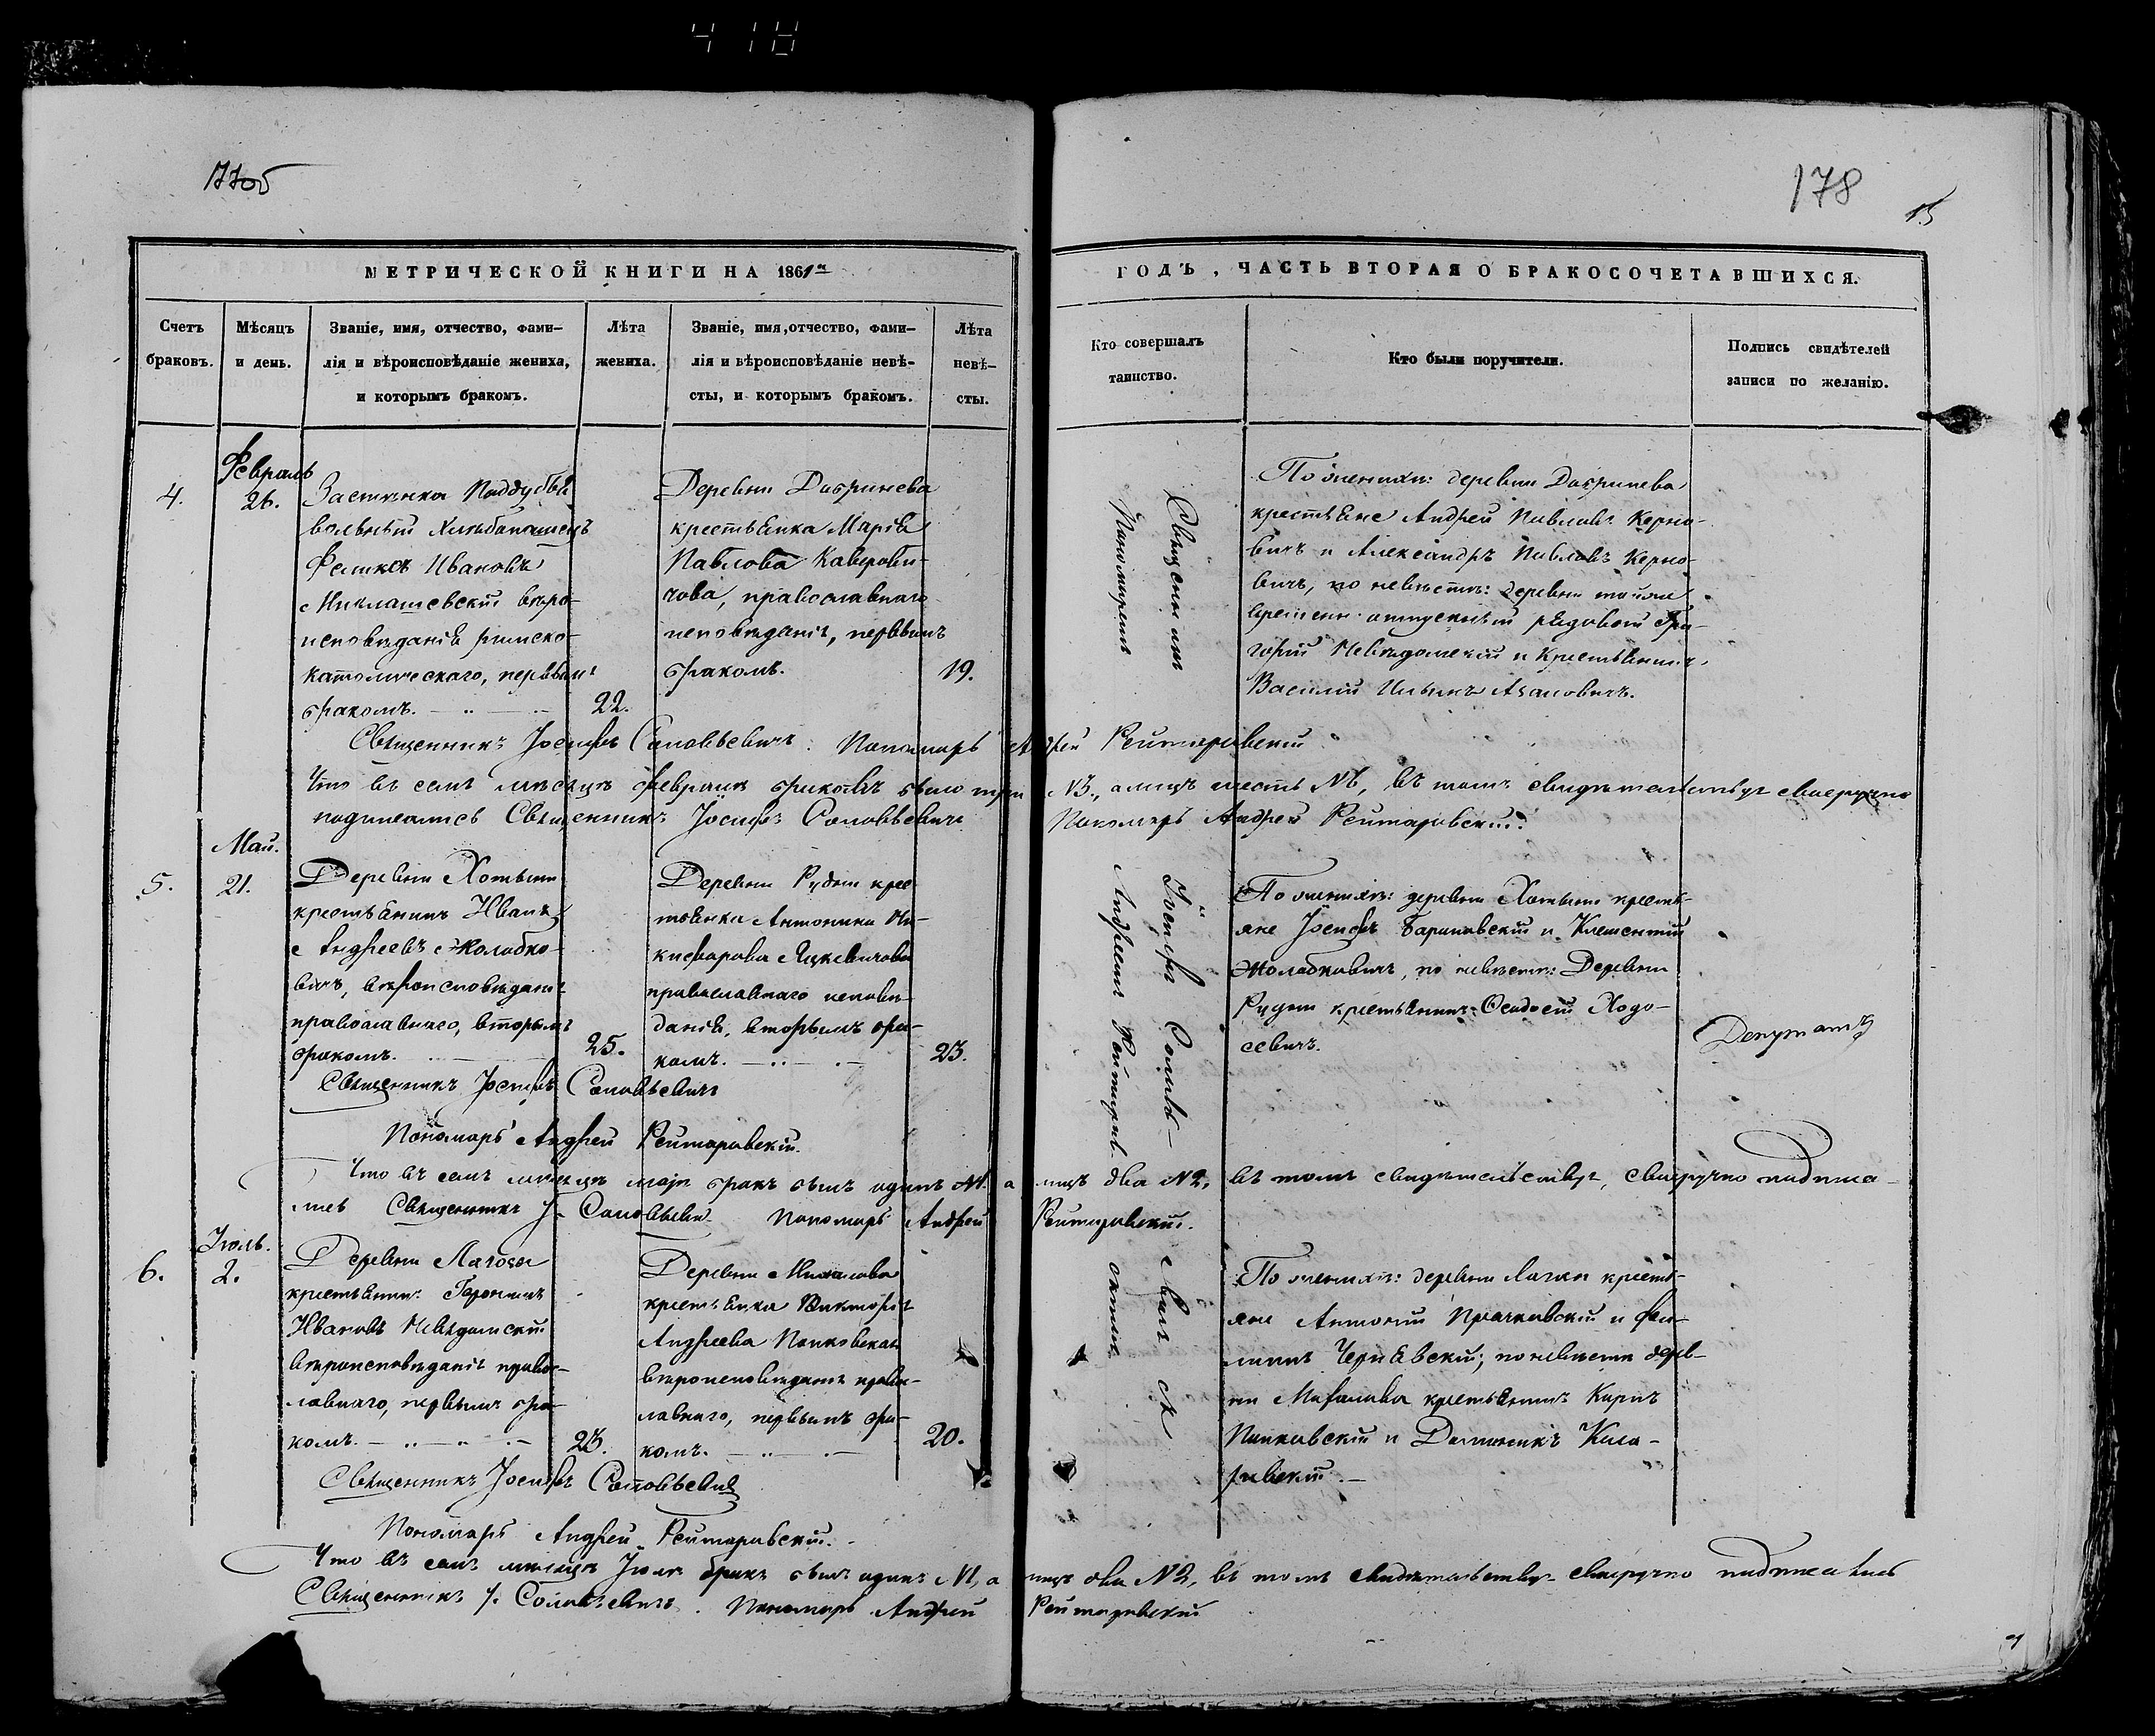 418
178
15
МЕТРИЧЕСКОЙ КНИГИ НА 1861й
ГОДЪ, ЧАСТЬ ВТОРАЯ О БРАКОСОЧЕТАВШИХСЯ.
Счетъ
браковъ.
Мѣсяцъ
и день.
Званіе, имя, отчество, фами-
лія и вѣроисповѣданіе жениха,
и которымъ бракомъ.
Лѣта
жениха.
Званіе, имя, отчество, фами-
лія и вѣроисповѣданіе невѣ-
сты, и которымъ бракомъ.
Лѣта
невѣ-
сты.
Кто совершалъ
таинство.
Кто были поручители.
Подпись свидѣтелей
записи по желанію.
4.
Февраль
26.
Застѣнка Поддубья
вольный хлѣбопашецъ
Феликсъ Ивановъ
Миклашевскій вѣро-
исповѣданія римско-
католическаго, первымъ
бракомъ.
22.
Деревни
крестьянка Марія
Павлова
православнаго
исповѣданія, первымъ
бракомъ.
19.
Священникъ
Пономаремъ
По женихѣ: деревни
крестьяне Андрей Павловъ Керно-
вичъ и Александръ Павловъ Керно-
вичъ, по невѣстѣ: деревни той же
временно отпускный рядовой Гри-
горій Невѣдомскій и крестьянинъ
Василій
Священникъ Іосифъ Соловьевичъ. Пономарь Андрей Рейтаровскій
Что въ семъ мѣсяцѣ февралѣ браковъ было три №3., а лицъ шесть №6, въ томъ свидѣтельствуя своеручно
подписались Священникъ Іосифъ Соловьевичъ Пономарь Андрей Рейтаровскій.
5.
Май.
21.
Деревни Хотыни
крестьянинъ Иванъ
Андреевъ Жолобко-
вичъ, вѣроисповѣданія
православнаго, вторымъ
бракомъ.
25.
Деревни Рудни крес-
тьянка Антонина Ни-
кифорова Яцкевичова
православнаго исповѣ-
данія, вторымъ бра-
комъ.
23.
Іосифъ Соловь-
Андреемъ Рейтаров-
По женихѣ: деревни Хотыни кресть-
яне Іосифъ Барановскій и Климентій
Жолобковичъ, по невѣстѣ: Деревни
Рудни крестьянинъ Ѳеодосій Ходо-
севичъ.
Депутатъ
Священникъ Іосифъ Соловьевичъ
Пономарь Андрей Рейтаровскій.
Что въ семъ мѣсяцѣ маѣ бракъ былъ одинъ №1. а лицъ два №2, въ томъ свидѣтельствуя, своеручно подписа-
лись Священникъ І. Соловьевичъ Пономарь Андрей Рейтаровскій.
6.
Іюль.
2.
Деревни
крестьянинъ Геронимъ
Ивановъ Невѣдомскій
вѣроисповѣданія правос-
лавнаго, первымъ бра-
комъ.
23.
Деревни
крестьянка Викторія
Андреева Попковская
вѣроисповѣданія правос-
лавнаго, первымъ бра-
комъ.
20.
евичъ съ
скимъ
По женихѣ: деревни кресть-
яне Антоній и Фи-
липъ Чернявскій; по невѣстѣ дерев-
ни крестьянинъ Карпъ
Попковскій и Доминикъ
Священникъ Іосифъ Соловьевичъ
Пономарь Андрей Рейтаровскій.
Что въ семъ мѣсяцѣ Іюлѣ бракъ былъ одинъ №1, а лицъ два №2, въ томъ свидѣтельствуя своеручно подписались
Священникъ І. Соловьевичъ. Пономарь Андрей Рейтаровскій